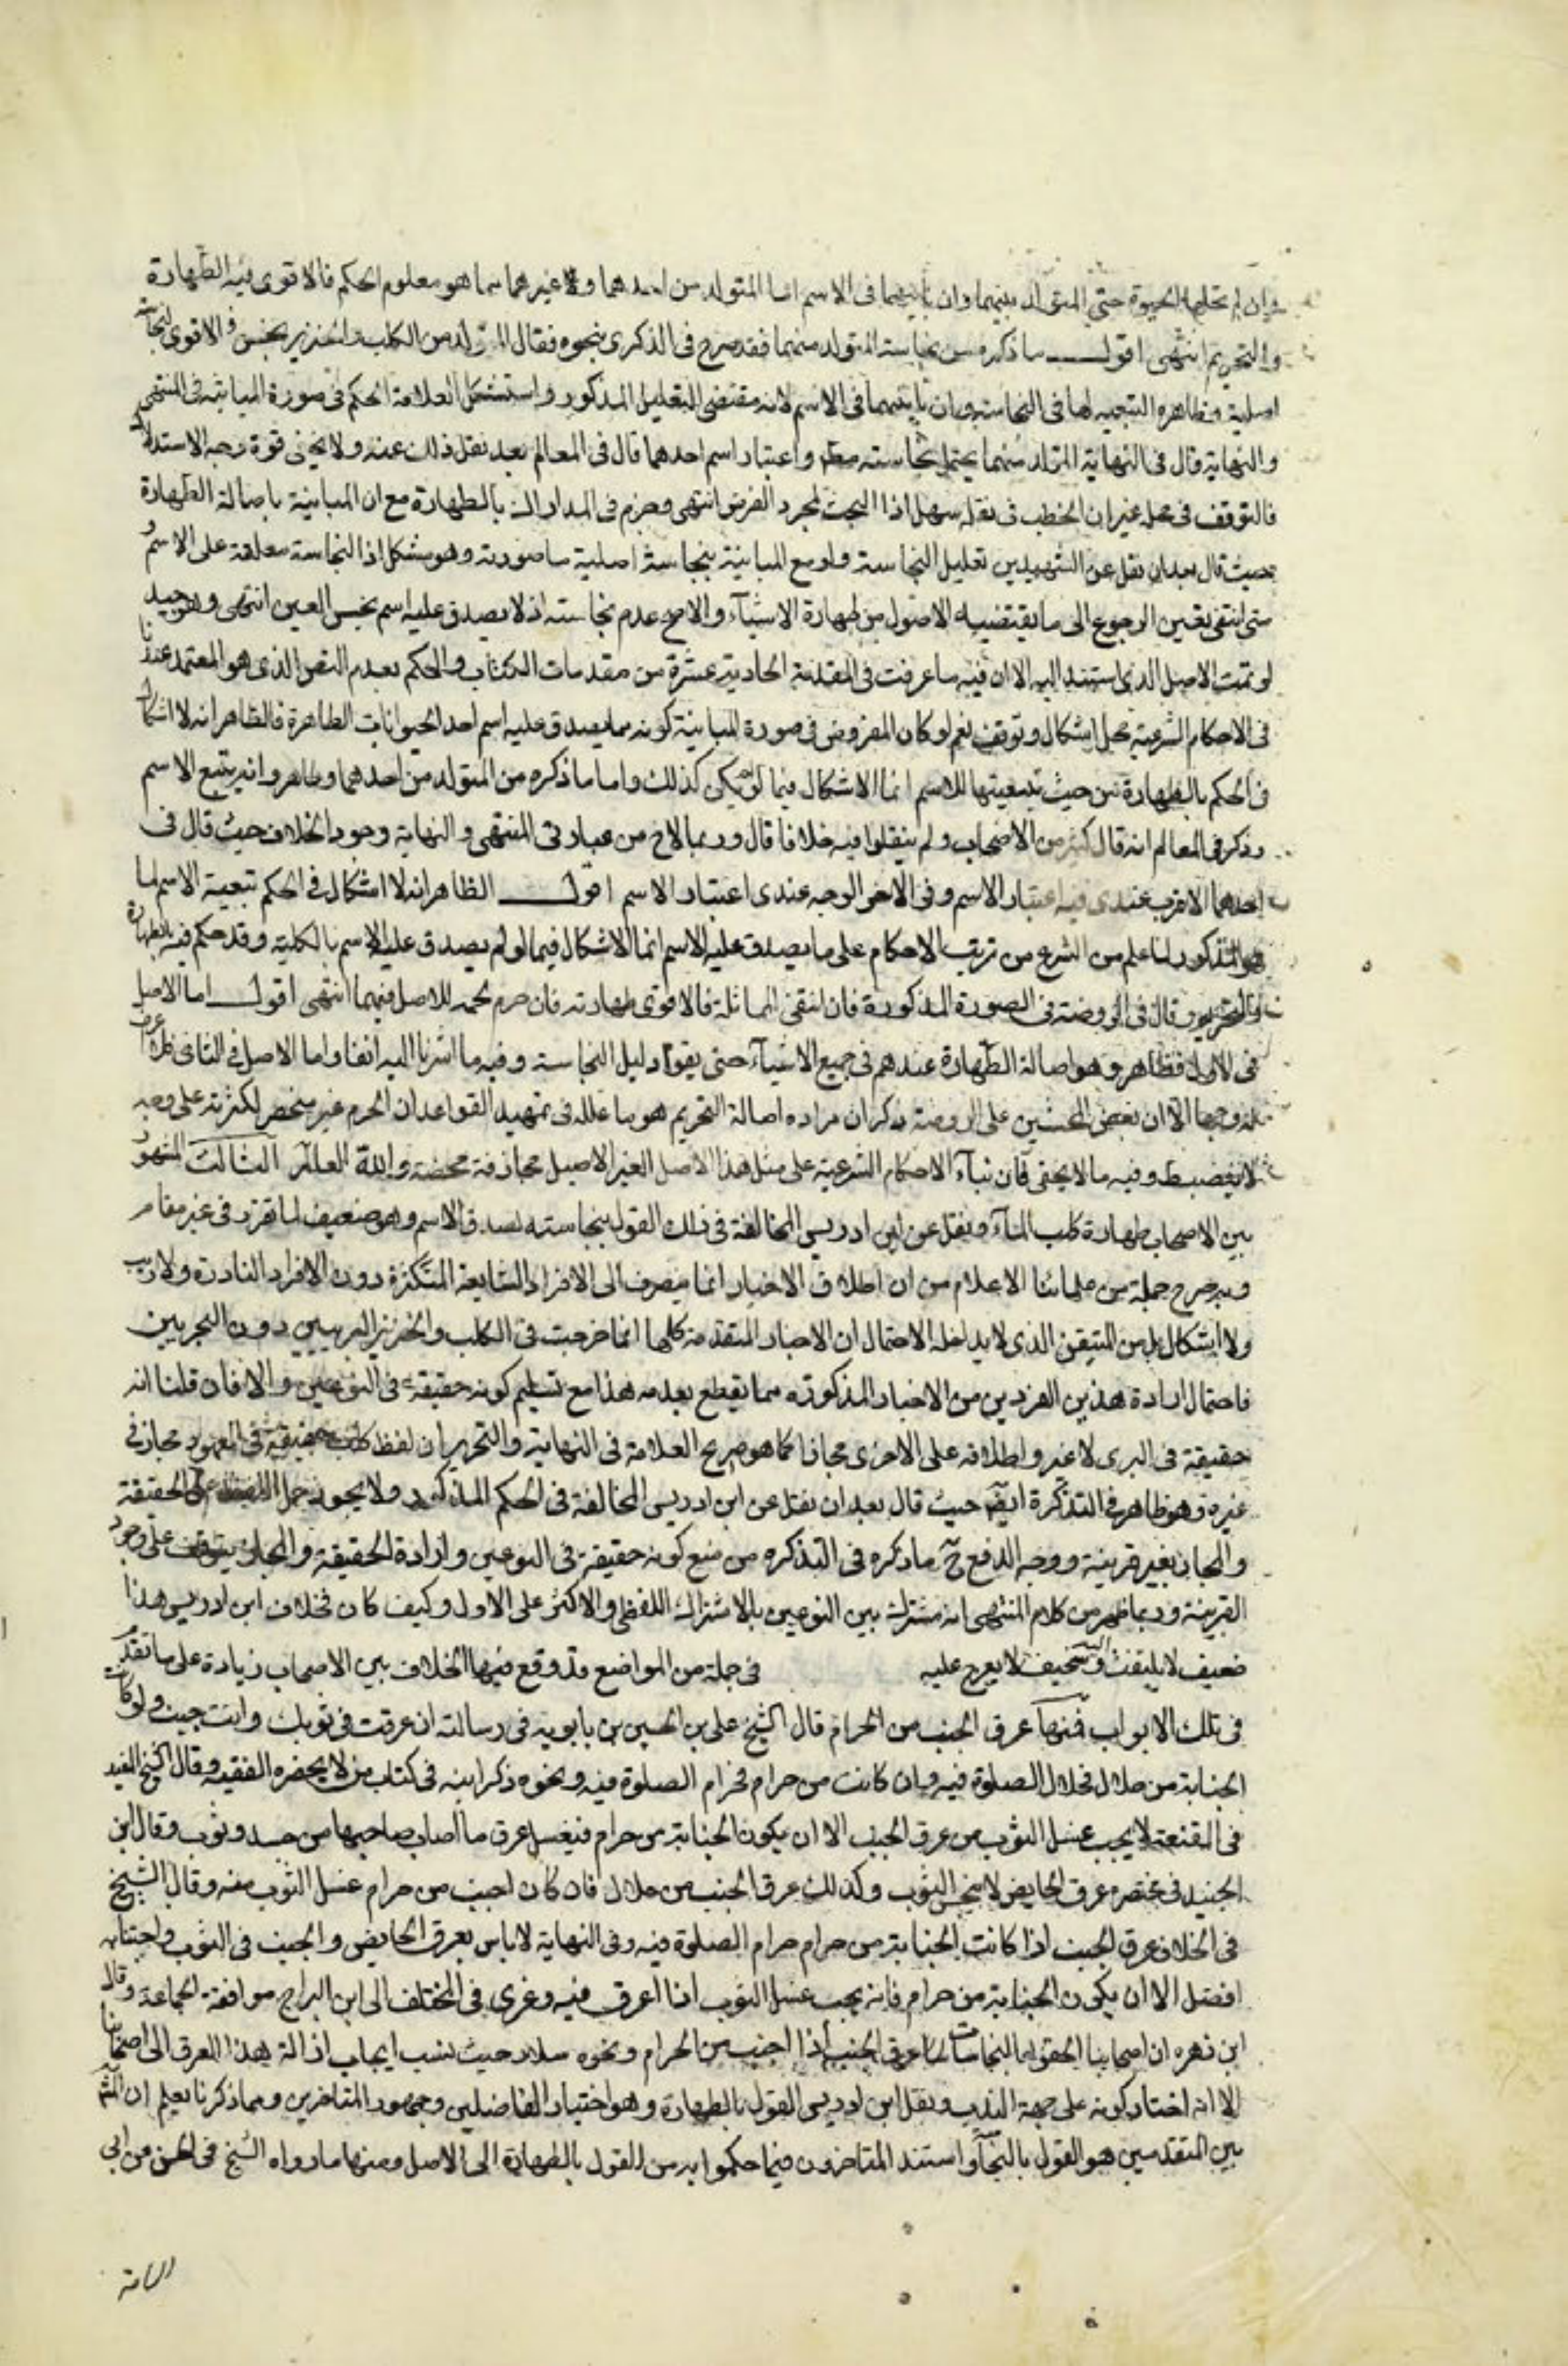 وان لم تحلها الحيوة حتى المتولد بينهما وان باينهما فى الاسم اما المتولد من احدهما وغيرهما مما هو معلوم الحكم فالاقوى فيه الطهارة
والتحريم انتهى اقول ما ذكره من نجاسة المتولد منهما فقد صرح فى الذكرى بنحوه فقال المتولد من الكلب والخنزير نجس فى الاقوى لنجاسة
اصليه وظاهره التبعيه لها فى النجاسة وان باينهما فى الاسم لانه مقتضى التعليل المذكور واستشكل العلامة الحكم فى صورة المباينة فى المنتهى
والنهاية قال فى النهاية المتولد منهما يحتمل نجاسته مط واعتبار اسم احدهما قال فى المعالم بعد نقل ذلك عنه ولا يخفى قوة وجه الاستدلال
فالتوقف فى محله غير ان الخطب فى نقله سهل اذا البحث لمجرد الفرض انتهى وجزم فى المدارك بالطهارة مع المباينة باصالة الطهارة
حيث قال بعد ان نقل عن الشهيدين تعليل النجاسة ولو مع المباينة بنجاسة اصلية ما صورته وهو مشكل اذ النجاسة معلقة على الاسم و
متى انتفى تعين الرجوع الى ما يقتضيه الاصول من طهارة الاشيآء والاصح عدم نجاسته اذ لا يصدق عليه اسم نجس العين انتهى وهو جيد
لو تمت الاصل الذى استند اليه الا ان فيه ما عرفت فى المقدمة الحادية عشرة من مقدمات الكتاب والحكم بعدم النص الذى هو المعتمد عندنا
فى الاحكام الشرعية محل اشكال وتوقف نعم لو كان المفروض فى صورة المباينة كونه مما يصدق عليه اسم احد الحيوانات الطاهرة فالظاهر انه لا اشكال
فى الحكم بالطهارة من حيث تبعيتها للاسم انما الاشكال فيما لو لم يكن كذلك واما ما ذكره من المتولد من احدهما وطاهر وانه يتبع الاسم
وذكر فى المعالم انه قال كثير من الاصحاب ولم ينقلوا فيه خلافا قال وربما لاح من عبارتى المنتهى والنهاية وجود الخلاف حيث قال فى
احدهما الاقرب عندى فيه اعتبار الاسم وفى الاخرى الوجه عندى اعتبار الاسم اقول الظاهر انه لا اشكال فى الحكم تبعية الاسم لما
هو المذكور لما علم من الشرع من ترتب الاحكام على ما يصدق عليه الاسم انما الاشكال فيما لو لم يصدق عليه الاسم بالكلية وقد حكم فيه بالطهارة
والتحريم وقال فى الروضة فى الصورة المذكورة فان انتفى المماثلة فالاقوى طهارته فان حرم لحمه للاصل فيهما انتهى اقول اما الاصل
فى الاول فظاهر وهو اصالة الطهارة عندهم فى جميع الاشيآء حتى يقوم دليل النجاسة وفيه ما اشرنا اليه انفا واما الاصل فى الثانى فلا اعرف
له وجها الا ان بعض المحشين على الروضة ذكر ان مراده اصالة التحريم هو ما علله فى تمهيد القواعد ان المحرم غير منحصر لكثرته على وجه
لا ينضبط وفيه ما لا يخفى فان بنآء الاحكام الشرعية على مثل هذا الاصل الغير الاصيل مجازفة محضة والله العالم الثالث المشهور
بين الاصحاب طهارة كلب المآء ونقل عن ابن ادريس المخالفة فى ذلك القول بنجاسته لصدق الاسم وهو ضعيف لما تقرر فى غير مقام
وبه صرح جملة من علمائنا الاعلام من ان اطلاق الاخبار انما ينصرف الى الافراد الشايعة المتكثرة دون الافراد النادرة ولا ريب
ولا اشكال بل من المتيقن الذى لا يداخله الاحتمال ان الاخبار المتقدمة كلها انما خرجت فى الكلب والخنزير البريين دون البحريين
فاحتمال ارادة هذين الفردين من الاخبار المذكورة مما يقطع بعدمه هذا مع تسليم كونه حقيقة فى النوعين والا فان قلنا انه
حقيقة فى البرى لا غير واطلاقه على الاخرى مجازا كما هو صريح العلامة فى النهاية والتحرير ان لفظ كلب حقيقة فى المعهود مجاز فى
غيره وهو ظاهره فى التذكرة ايضا حيث قال بعد ان نقل عن ابن ادريس المخالفة فى الحكم المذكور ولا يجوز حمل اللفظ على الحقيقة
والمجاز بغير قرينة ووجه الدفع ح ما ذكره فى التذكره من منع كونه حقيقة فى النوعين وارادة الحقيقة والمجاز يتوقف على وجود
القرينة وربما ظهر من كلام المنتهى انه مشترك بين النوعين بالاشتراك اللفظى والاكثر على الاول وكيف كان فخلاف ابن ادريس هذا
ضعيف لا يلتفت اليه وسخيف لا يعرج عليه فى جملة من المواضع وقد وقع فيها الخلاف بين الاصحاب زيادة على ما تقدم
فى تلك الابواب فمنها عرق الجنب من الحرام قال الشيخ على بن الحسين بن بابويه فى رسالته ان عرقت فى ثوبك وانت جنب ولو كانت
الجنابة من حلال فحلال الصلوة فيه وان كانت من حرام فحرام الصلوة فيه ونحوه ذكر ابنه فى كتاب من لا يحضره الفقيه وقال الشيخ المفيد
فى المقنعة لا يجب غسل الثوب من عرق الجنب الا ان يكون الجنابة من حرام فيغسل عرق ما اصاب صاحبها من جسد وثوب وقال ابن
الجنيد فى مختصره عرق الحايض لا ينجس الثوب وكذلك عرق الجنب من حلال فان كان اجنب من حرام غسل الثوب منه وقال الشيخ
فى الخلاف عرق الجنب اذا كانت الجنابة من حرام حرام الصلوة فيه وفى النهاية لا باس بعرق الحايض والجنب فى الثوب واجتنابه
افضل الا ان يكون الجنابة من حرام فانه يجب غسل الثوب اذا عرق فيه وعزى فى المختلف الى ابن البراج موافقة الجماعة وقال
ابن زهره ان اصحابنا الحقوا بالنجاسات عرق الجنب اذا اجنب من الحرام ونحوه سلار حيث نسب ايجاب ازالة هذا العرق الى اصحابنا
الا انه اختار كونه على جهة الندب ونقل ابن ادريس القول بالطهارة وهو اختيار الفاضلين وجمهور المتاخرين ومما ذكرنا يعلم ان المشهور
بين المتقدمين هو القول بالنجاسة واستند المتاخرون فيما حكموا به من القول بالطهارة الى الاصل ومنها ما رواه الشيخ فى الحسن عن ابى
اسامة